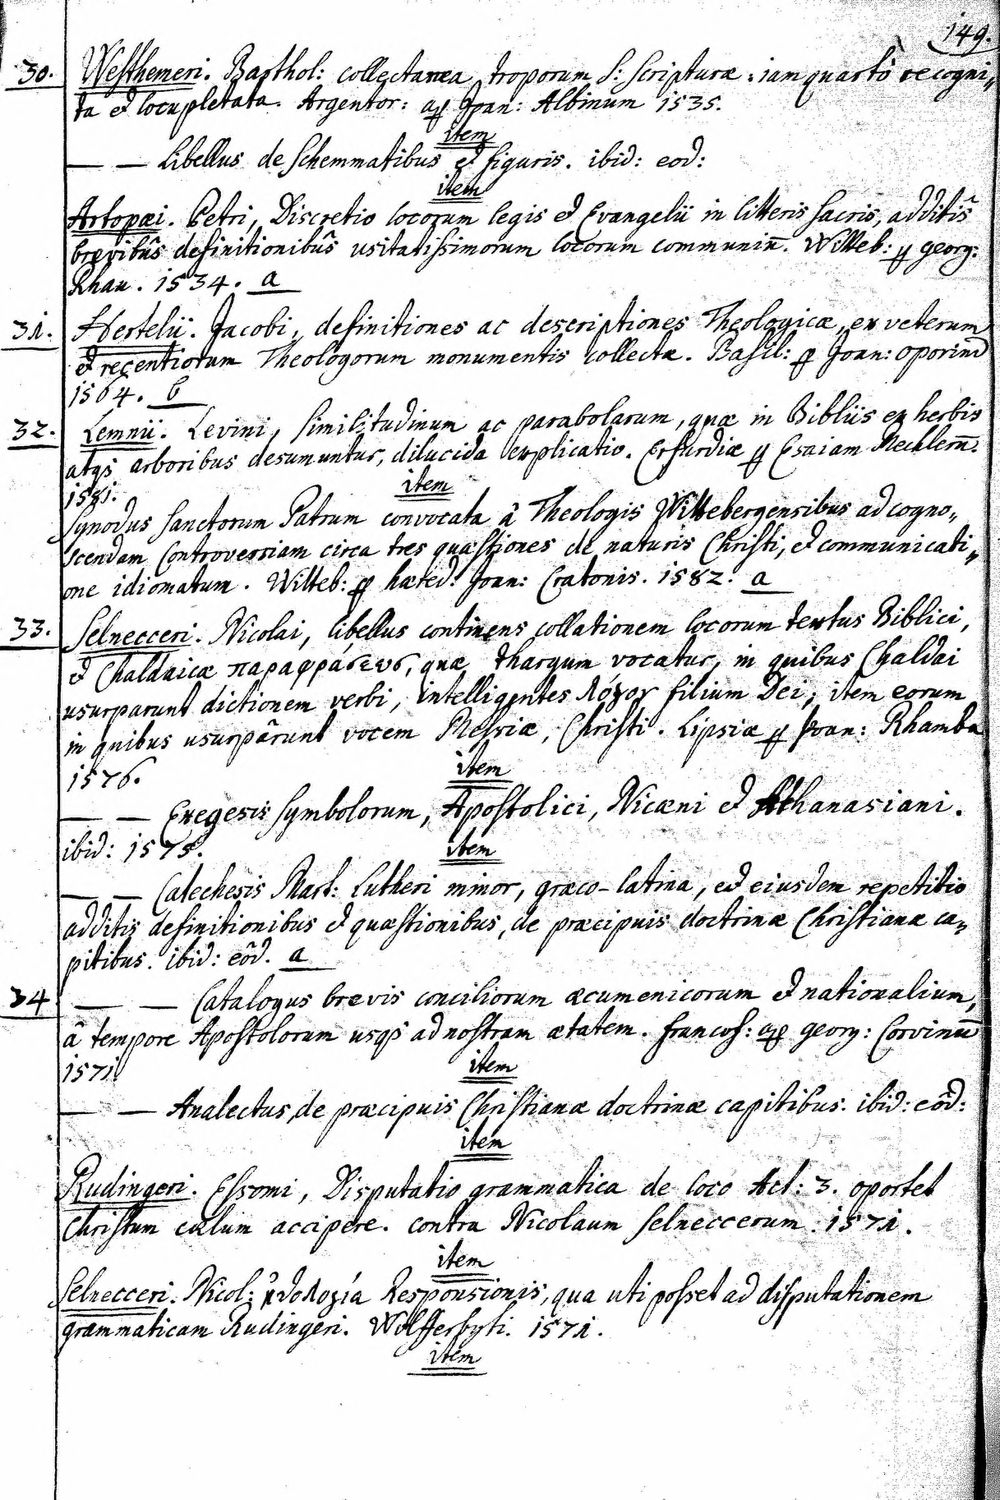 149.
30. Westhemeri. Barthol: collectanea troporum S: Scripturæ: iam quartò recogni„
ta et locupletata. Argentor: ap Joan: Albinum 1535.
item
— — Libellus de schemmatibus et figuris. ibid: eod:
item
Artopæi. Petri, Discretio locorum legis et Evangelii in litteris sacris, additis
brevibus definitionibus usitatissimorum locorum communiū. Witteb: p georg:
Rhau. 1534. a
31. Hertelii. Jacobi, definitiones ac descriptiones Theologicæ, ex veterum
et recentiorum Theologorum monumentis collectæ. Basil: p Joan: oporinū
1564. b
32. Lemnii. Levini, similitudinum ac parabolarum, quæ in Bibliis ex herbis
atqs arboribus desumuntur, dilucida explicatio. Erfurdiæ p Esaiam Mechlerū.
1581.
item
Synodus sanctorum Patrum convocata à Theologis Wittebergensibus ad cogno„
scendam Controversiam circa tres quæstiones de naturis Christi, et communicati„
one idiomatum. Witteb: p hæred: Joan: Cratonis. 1582. a
33. Selnecceri. Nicolai, libellus continens collationem locorum textus Biblici,
et Chaldaicæ παραφράσεως, quæ thargum vocatur, in quibus Chaldæi
usurparunt dictionem verbi, intelligentes λόγον filium Dei; item eorum
in quibus usurpârunt vocem Messiæ, Christi. Lipsiæ p Joan: Rhamba
1576.
item
— — Exegesis symbolorum, Apostolici, Nicæni et Athanasiani.
ibid: 1575.
item
— — Catechesis Mart: Lutheri minor, græco-latina, et eiusdem repetitio
additis definitionibus et quæstionibus, de præcipuis doctrinæ Christianæ ca„
pitibus. ibid: eōd. a
34 — — Catalogus brevis conciliorum œcumenicorum et nationalium,
â tempore Apostolorum usqs ad nostram ætatem. francof: ap georg: Corvinū
1571.
item
— — Analectus de præcipuis Christianæ doctrinæ capitibus. ibid: eōd:
item
Rudingeri. Essomi, Disputatio grammatica de loco Act: 3. oportet
Christum cælum accipere. contra Nicolaum Selneccerum. 1571.
item
Selnecceri. Nicol: Responsionis, qua uti posset ad disputationem
grammaticam Rudingeri. Wolfferbyti. 1571.
item